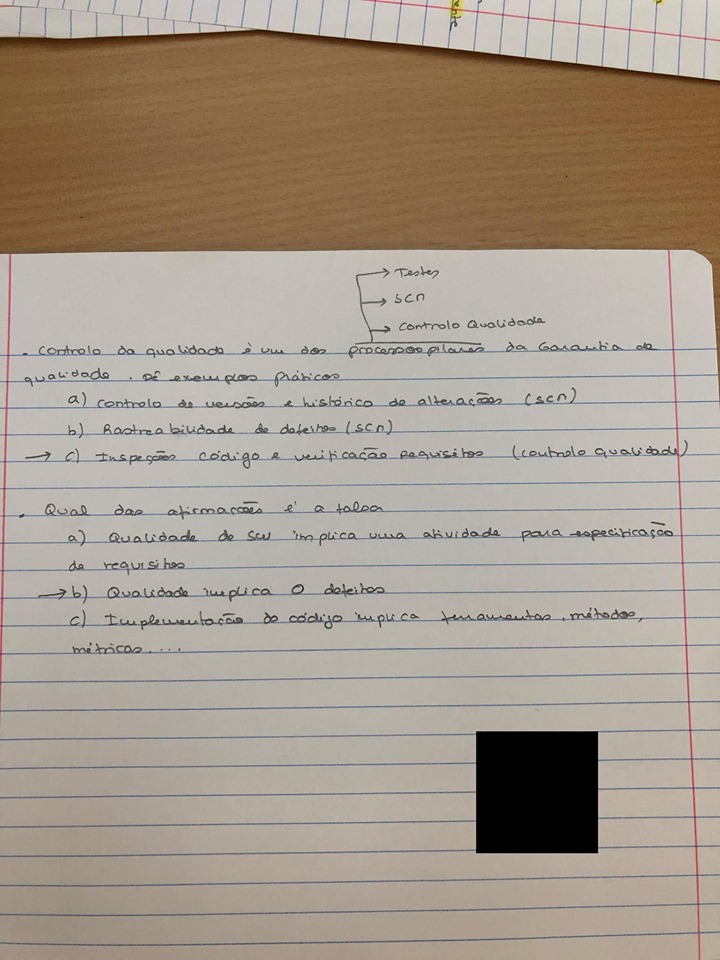 → Testes
→ SCM
→ Controlo Qualidade
. Controlo da qualidade é um dos processos pilares da Garantia de
qualidade. Dê exemplos práticos
a) Controlo de versões e histórico de alterações (SCM)
b) Rastreabilidade de defeitos (SCM)
→ c) Inspeções código e verificação requisitos (controlo qualidade)
. Qual das afirmações é a falsa
a) Qualidade de SW implica uma atividade para especificação
de requisitos
→ b) Qualidade implica 0 defeitos
c) Implementação do código implica ferramentas, métodos,
métricas....